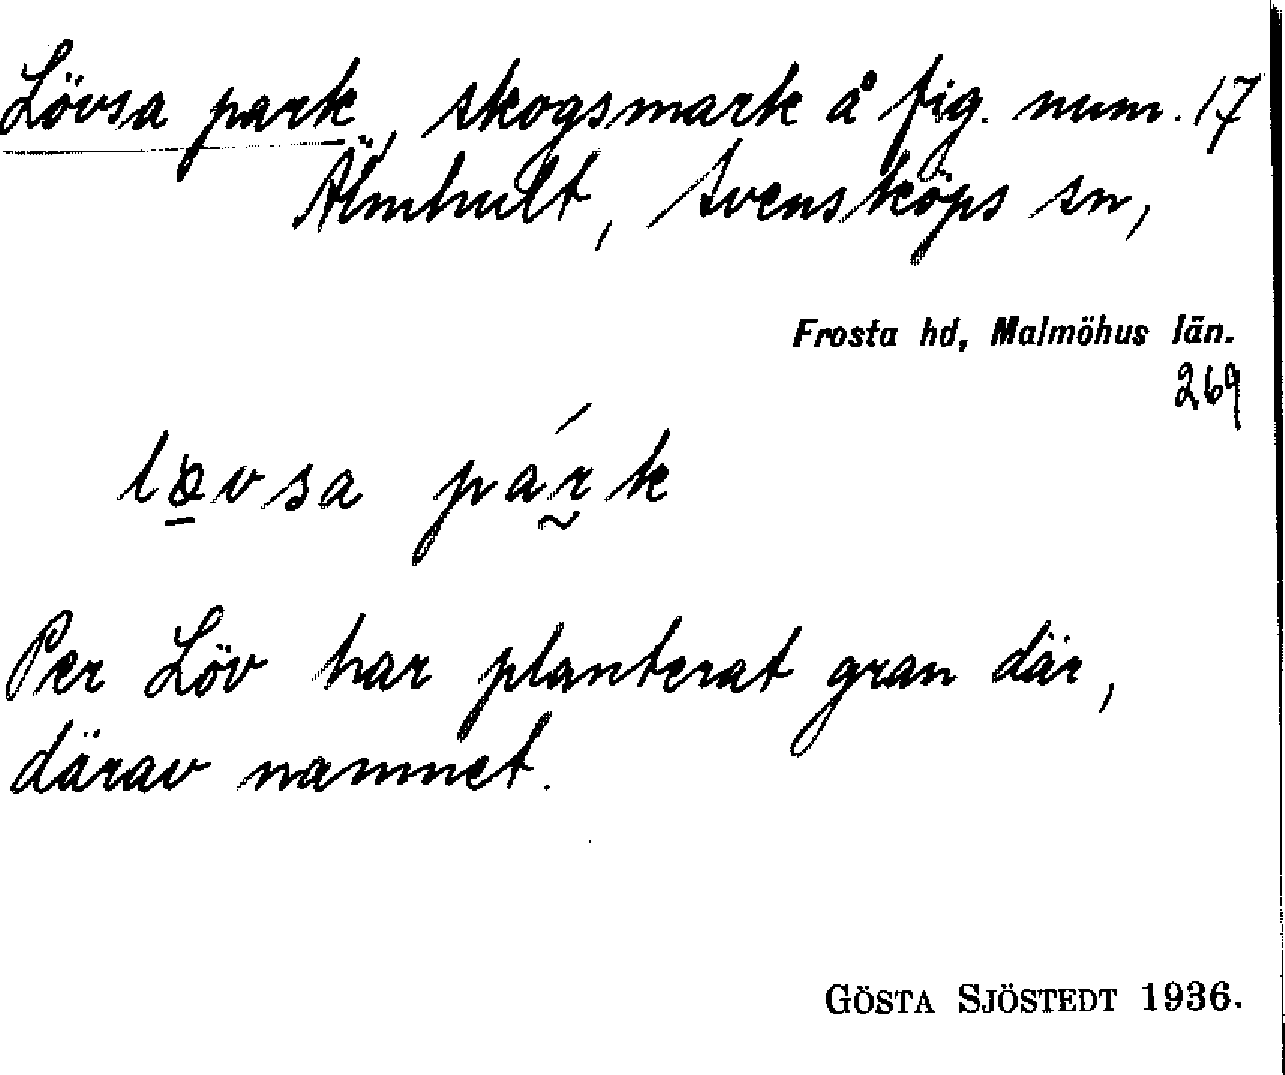 Lövsa park, skogsmark å fig. num. 17
Älmhult, Svensköps sn,
Frosta hd, Malmöhus län.
269
lø̱vsa pár̰k
Per Löv har planterat gran där,
därav namnet.
GÖSTA SJÖSTEDT 1936.